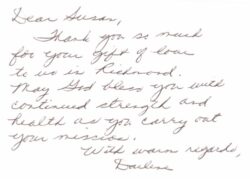 Dear Susan,
Thank you so much
for your gift of love
to us in Richmond.
May God bless you with
continued strength and
health as you carry out
your mission.
With warm regards,
Darlene